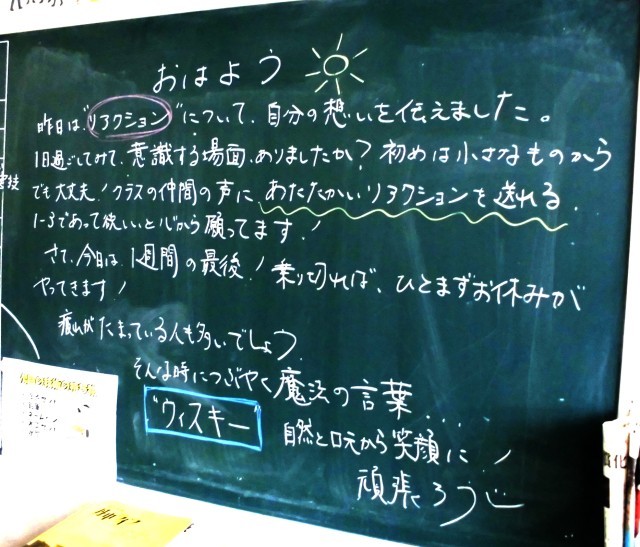 おはよう
昨日は"リアクション"について、自分の想いを伝えました。
1日過ごしてみて、意識する場面、ありましたか?初めは小さなものから
でも大丈夫!クラスの仲間の声に、あたたかいリアクションを送れる
1-3であって欲しい、と心から願ってます!
さて、今日は、1週間の最後!乗り切れば、ひとまずお休みが
やってきます!
疲れがたまっている人も多いでしょう。
そんな時につぶやく魔法の言葉....
"ウィスキー"
自然と口元から笑顔に!
頑張ろう